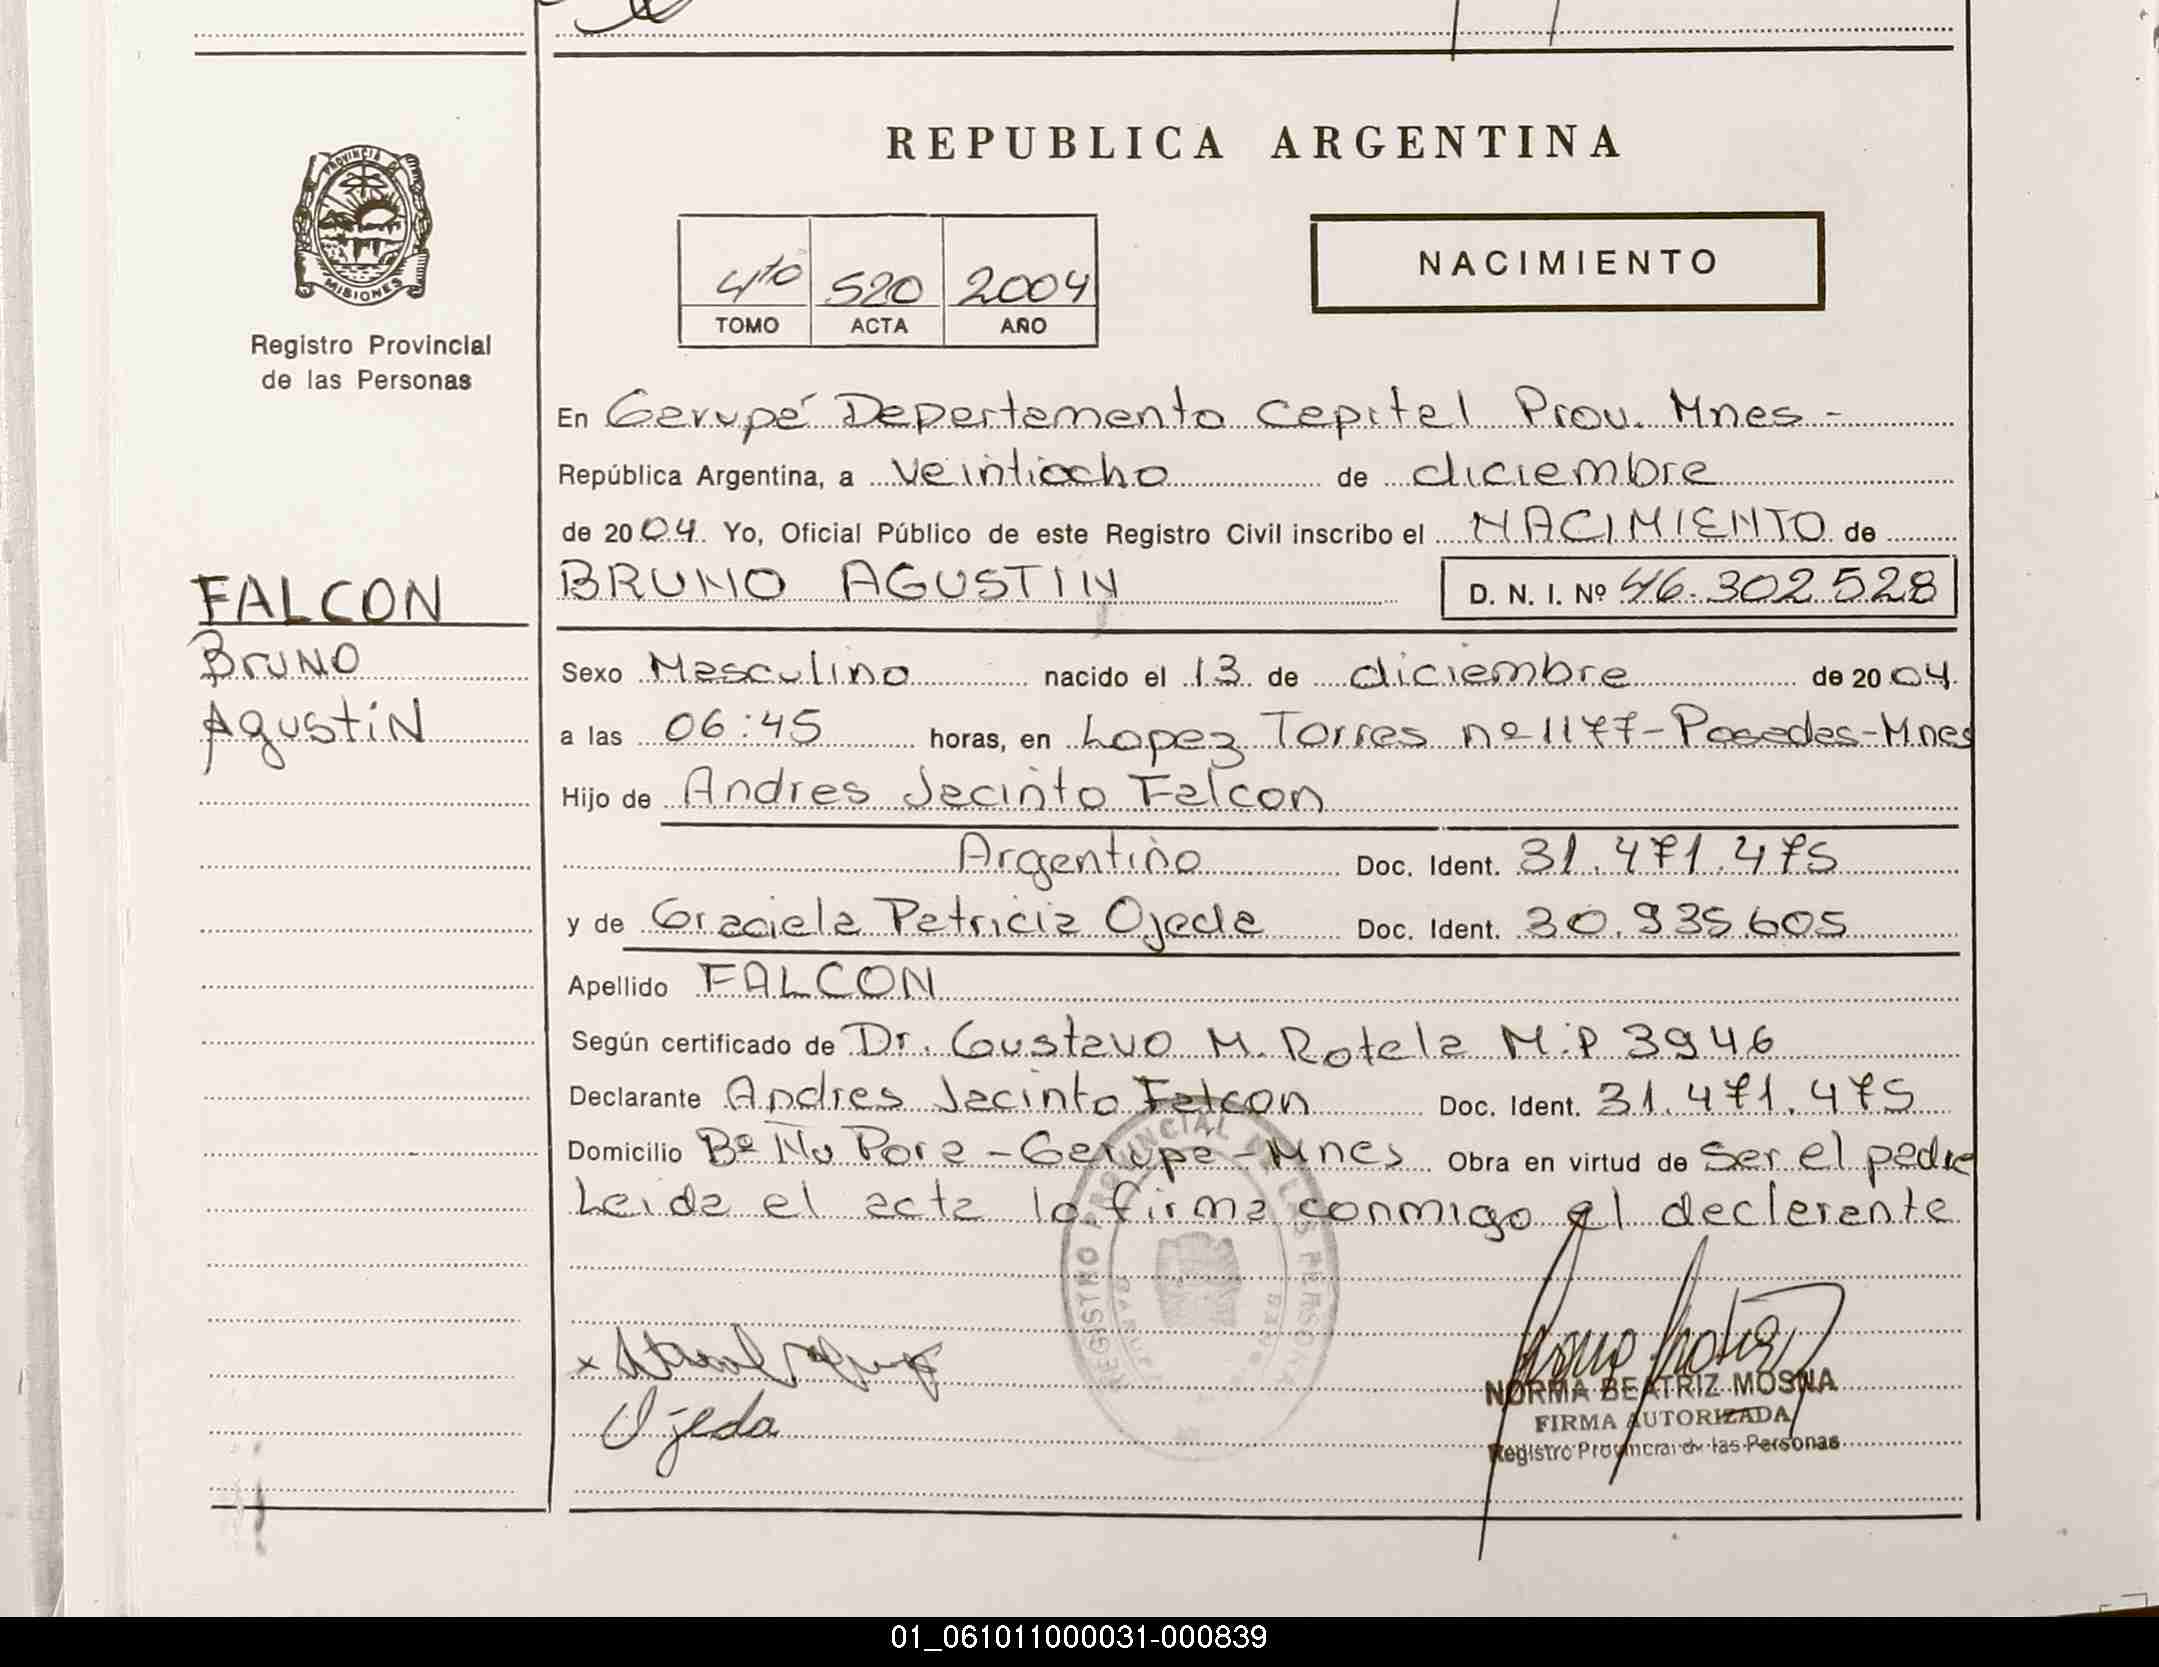 REPUBLICA ARGENTINA
PROVINCIA DE
MISIONES
Registro Provincial
de las Personas
4to 520 2004
TOMO ACTA AÑO
NACIMIENTO
En Garupá Departamento Capital Prov. Mnes -
República Argentina, a veintiocho de diciembre
de 2004. Yo, Oficial Público de este Registro Civil inscribo el NACIMIENTO de
FALCON
Bruno
Agustin
BRUNO AGUSTIN D. N. I. Nº 46.302.528
Sexo Masculino nacido el 13 de diciembre de 2004.
a las 06:45 horas, en Lopez Torres nº 1177-Posadas-Mnes
Hijo de Andres Jacinto Falcon
Argentino Doc. Ident. 31.471.475
y de Graciela Patricia Ojeda Doc. Ident. 30.935.605
Apellido FALCON
Según certificado de Dr. Gustavo M. Rotela M.P 3946
Declarante Andres Jacinto Falcon Doc. Ident. 31.471.475
Domicilio Bº Ñu Pora - Garupa - Mnes Obra en virtud de ser el padre
Leida el acta la firma conmigo el declarante
REGISTRO PROVINCIAL DE LAS PERSONAS
x
Ojeda
NORMA BEATRIZ MOSNA
FIRMA AUTORIZADA
Registro Provincial de las Personas
01_061011000031-000839